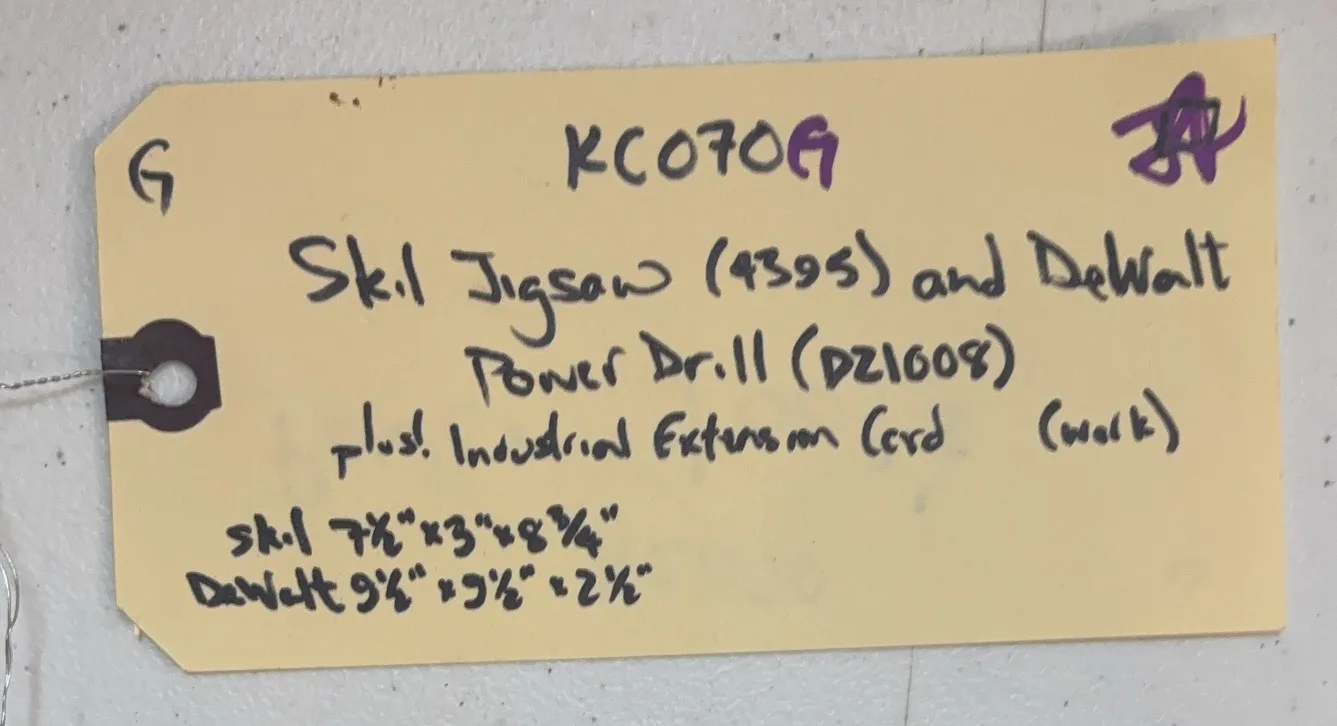 G
KC070G
Skil Jigsaw (4395) and DeWalt
Power Drill (DZ1008)
plus! Industrial Extension Cord (work)
Skil 7½" x 3" x 8 ¾"
DeWalt 9½" x 9½" x 2½"